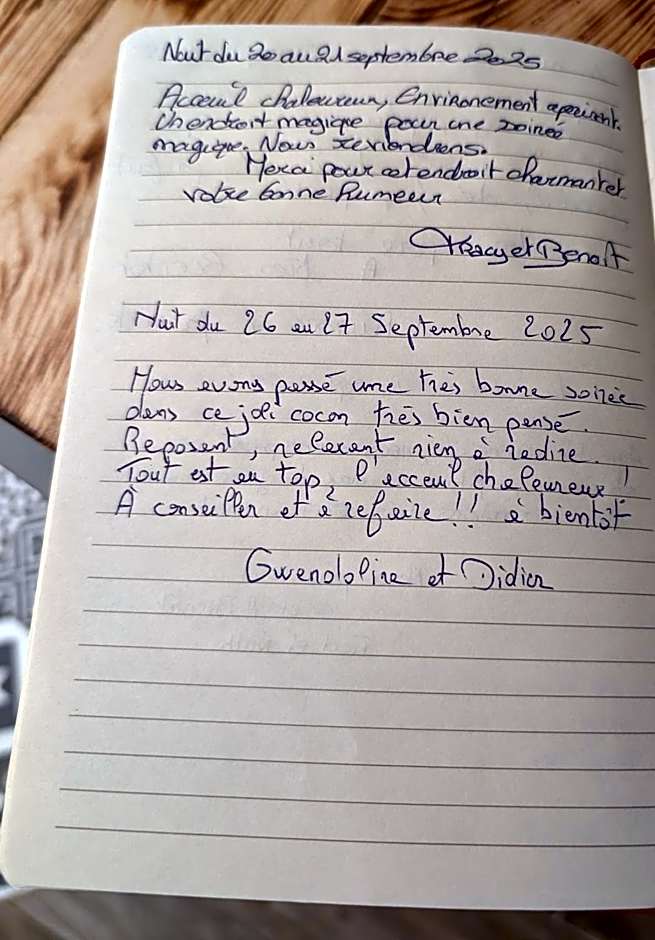 Nuit du 20 au 21 septembre 2025
Acceuil chaleureux, Environement apaisant.
Un endroit magique pour une soirée
magique. Nous reviendrons.
Merci pour cet endroit charmant et
votre bonne humeur
Tracy et Benoît
Nuit du 26 au 27 Septembre 2025
Nous avons passé une très bonne soirée
dans ce joli cocon très bien pensé.
Reposant, relaxant rien à redire.
Tout est au top, l'acceuil chaleureux !
À conseiller et à refaire !! à bientôt
Gwendoline et Didier